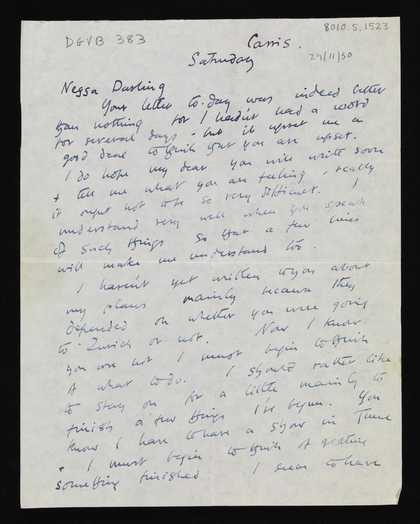 8010.5.1523
DGVB 383
Cassis.
Saturday
29/11/30
Negsa Darling
Your letter to-day was indeed better
than nothing for I hadn't had a word
for several days - but it upset me a
good deal to think that you are upset.
I do hope my dear you will write soon
& tell me what you are feeling, really
it ought not to be so very difficult. I
understand very well when you speak
of such things so that a few lines
will make me understand too.
I haven't yet written to you about
my plans mainly because they
depended on whether you were going
to Zurich or not. Now I know
you are not I must begin to think
of what to do. I should rather like
to stay on for a little mainly to
finish a few things I've begun. You
know I have to have a show in June
& I must begin to think of getting
something finished I seem to have